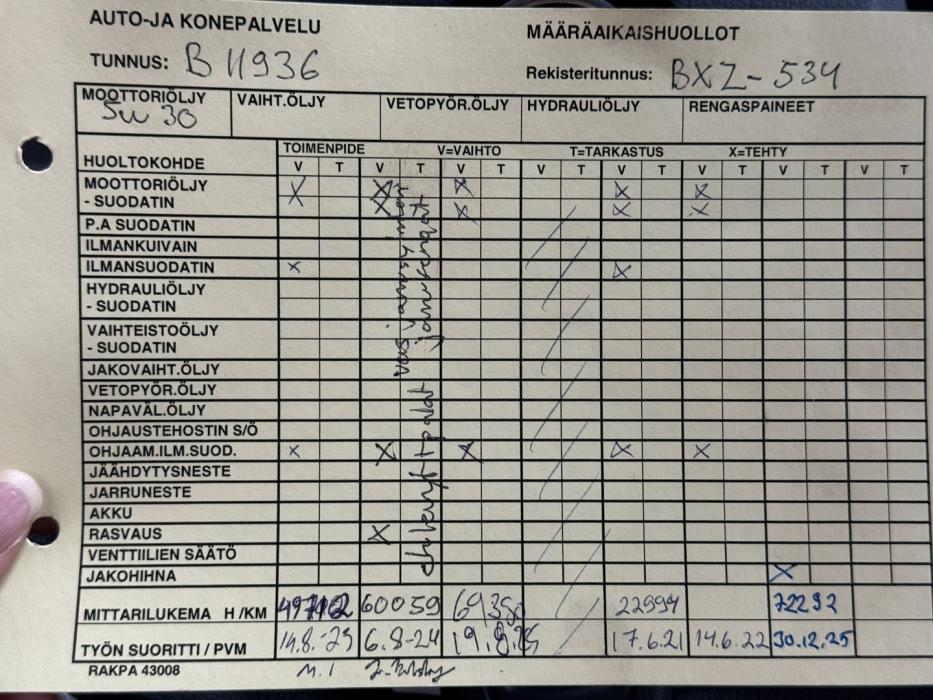 AUTO-JA KONEPALVELU
MÄÄRÄAIKAISHUOLLOT
TUNNUS: B 11936
Rekisteritunnus: BXZ-534
MOOTTORIÖLJY VAIHT.ÖLJY VETOPYÖR.ÖLJY HYDRAULIÖLJY RENGASPAINEET
5W 30
TOIMENPIDE V=VAIHTO T=TARKASTUS X=TEHTY
HUOLTOKOHDE V T V T V T V T V T V T V T V T
MOOTTORIÖLJY X X X X X
- SUODATIN X X X X
P.A SUODATIN
ILMANKUIVAIN
ILMANSUODATIN X X
HYDRAULIÖLJY
- SUODATIN
VAIHTEISTOÖLJY
- SUODATIN
JAKOVAIHT.ÖLJY
VETOPYÖR.ÖLJY
NAPAVÄL.ÖLJY
OHJAUSTEHOSTIN S/Ö
OHJAAM.ILM.SUOD. X X X X X
JÄÄHDYTYSNESTE
JARRUNESTE
AKKU
RASVAUS X
VENTTIILIEN SÄÄTÖ
JAKOHIHNA X
MITTARILUKEMA H /KM 60059 22994 72292
TYÖN SUORITTI / PVM 14.8.-23 6.8-24 19.8.25 17.6.21 14.6.22 30.12.25
RAKPA 43008 M.I